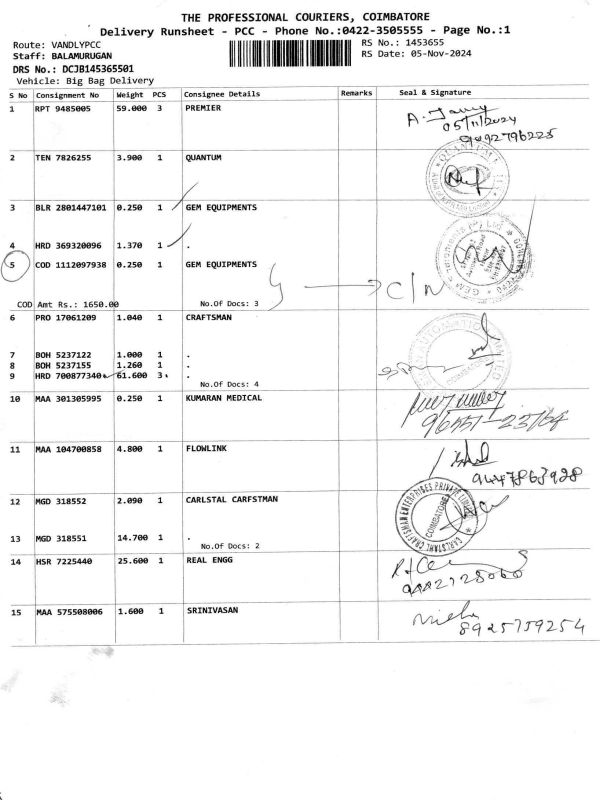 THE PROFESSIONAL COURIERS, COIMBATORE
Delivery Runsheet - PCC - Phone No.:0422-3505555 - Page No.:1
Route: VANDLYPCC
RS No.: 1453655
Staff: BALAMURUGAN
RS Date: 05-Nov-2024
DRS No.: DCJB145365501
Vehicle: Big Bag Delivery
S No Consignment No Weight PCS Consignee Details Remarks Seal & Signature
1 RPT 9485005 59.000 3 PREMIER
05/11/2024
2 TEN 7826255 3.900 1 QUANTUM
3 BLR 2801447101 0.250 1 GEM EQUIPMENTS
4 HRD 369320096 1.370 1 .
5 COD 1112097938 0.250 1 GEM EQUIPMENTS
C/N
COD Amt Rs.: 1650.00 No.Of Docs: 3
6 PRO 17061209 1.040 1 CRAFTSMAN
7 BOH 5237122 1.000 1 .
8 BOH 5237155 1.260 1 .
9 HRD 700877340 61.600 3 .
No.Of Docs: 4
10 MAA 301305995 0.250 1 KUMARAN MEDICAL
96551-23764
11 MAA 104700858 4.800 1 FLOWLINK
9447863928
12 MGD 318552 2.090 1 CARLSTAL CARFSTMAN
CARLSTAHL CRAFTSMAN ENTERPRISES PRIVATE LIMITED
COIMBATORE
13 MGD 318551 14.700 1 .
No.Of Docs: 2
14 HSR 7225440 25.600 1 REAL ENGG
9442128060
15 MAA 575508006 1.600 1 SRINIVASAN
8925759254